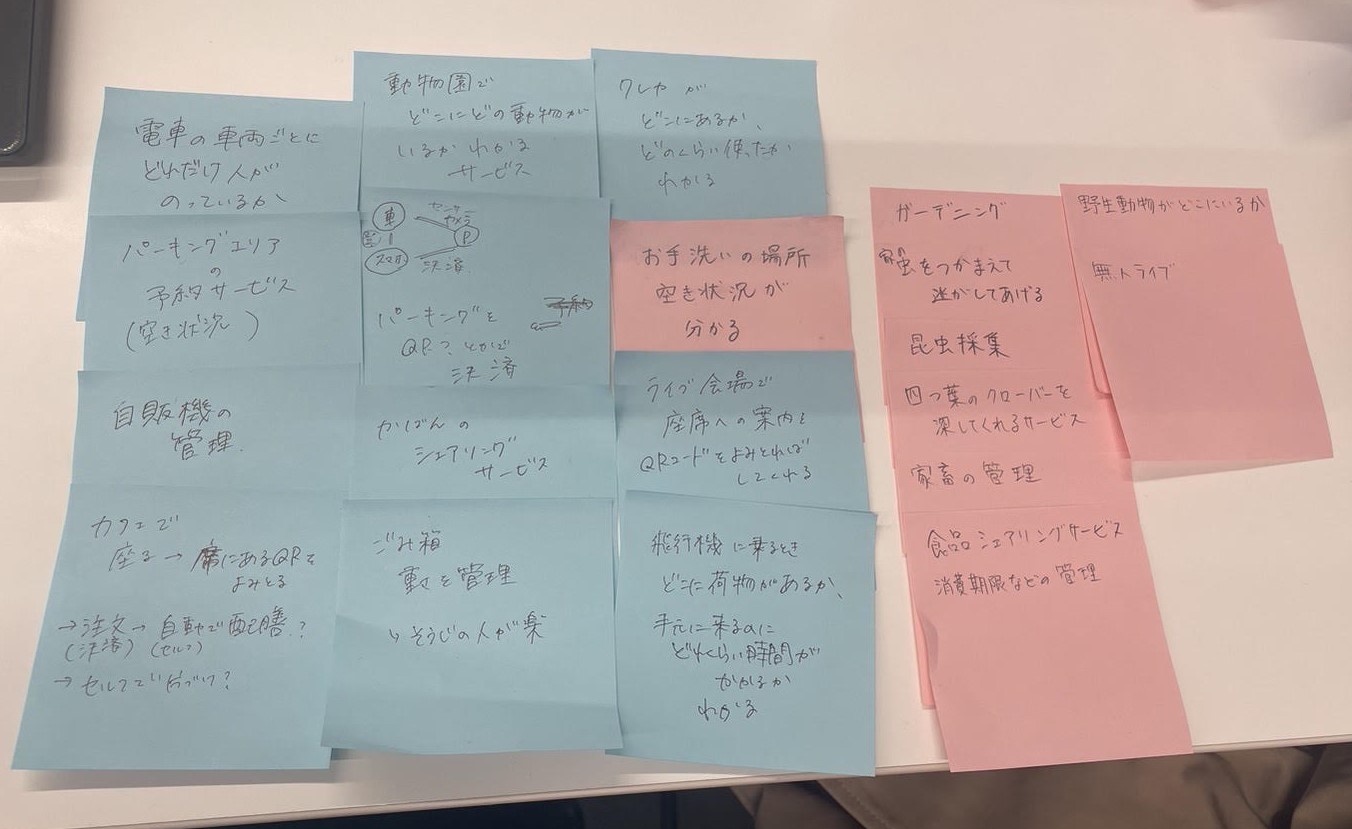 電車の車両ごとに
どれだけ人が
のっているか
パーキングエリア
の
予約サービス
(空き状況)
自販機の
管理.
カフェで
座る→席にあるQRを
よみとる
→注文→自動で配膳?
(決済)(セルフ)
→セルフで片づけ?
動物園で
どこにどの動物が
いるか わかる
サービス
車
センサー
カメラ
P
スマホ
決済
パーキングを
QR?とかで
決済
かばんの
シェアリング
サービス
ごみ箱
重さを管理
↳そうじの人が楽
クレカが
どこにあるか、
どのくらい使ったか
わかる
お手洗いの場所
空き状況が
分かる
ライブ会場で
座席への案内を
QRコードをよみとれば
してくれる
飛行機に乗るとき
どこに荷物があるか、
手元に来るのに
どれくらい時間が
かかるか
わかる
ガーデニング
虫をつかまえて
逃がしてあげる
昆虫採集
四つ葉のクローバーを
深してくれるサービス
家畜の管理
食品シェアリングサービス
消費期限などの管理
野生動物がどこにいるか
無人ライブ